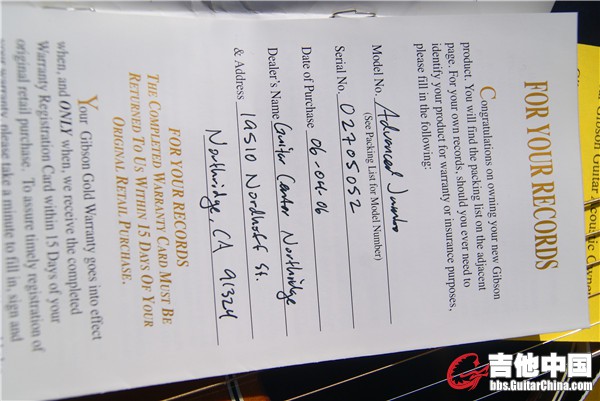 FOR YOUR RECORDS
Congratulations on owning your new Gibson
product. You will find the packing list on the adjacent
page. For your own records, should you ever need to
identify your product for warranty or insurance purposes,
please fill in the following:
Model No. Advanced Jumbo
(See Packing List for Model Number)
Serial No. 02705052
Date of Purchase 06-04-06
Dealer's Name Guitar Center Northridge
& Address 19510 Nordhoff St.
Northridge, CA 91324
FOR YOUR RECORDS
THE COMPLETED WARRANTY CARD MUST BE
RETURNED TO US WITHIN 15 DAYS OF YOUR
ORIGINAL RETAIL PURCHASE.
Your Gibson Gold Warranty goes into effect
when, and ONLY when, we receive the completed
Warranty Registration Card within 15 Days of your
original retail purchase. To assure timely registration of
your warranty, please take a minute to fill in, sign and
Gibson Guitar Acoustic Owner
吉他中国
bbs.GuitarChina.com